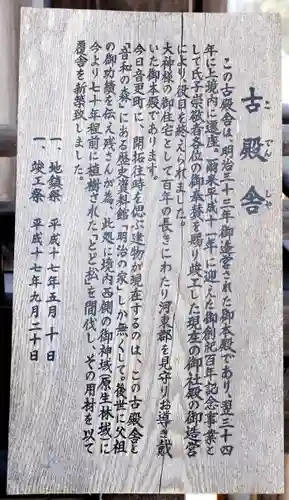 古殿舎
こでんしゃ
この古殿舎は、明治三十三年御造営された御本殿であり、翌三十四
年に上境内に遷座。爾来平成十一年に迎えた御創祀百年記念事業と
して氏子崇敬者各位の御奉賛を賜り竣工した現在の御社殿の御造営
により役目を終えられました。
大神様の御住宅として百年の長きにわたり河東郡を見守りお導き戴
いた御本殿であります。
今日音更町に、開拓往時を偲ぶ建物が現在するのは、この古殿舎と
「音和の森」にある歴史資料館「明治の家」しか無くして、後世に父祖
の御功績を伝え残さんが為、此処に境内西側の御神域(原生林城)に
今より七十年程前に植樹された「とど松」を間伐し、その用材を以て
覆舎を新築致しました。
一、地鎮祭 平成十七年五月十日
一、竣工祭 平成十七年九月二十日